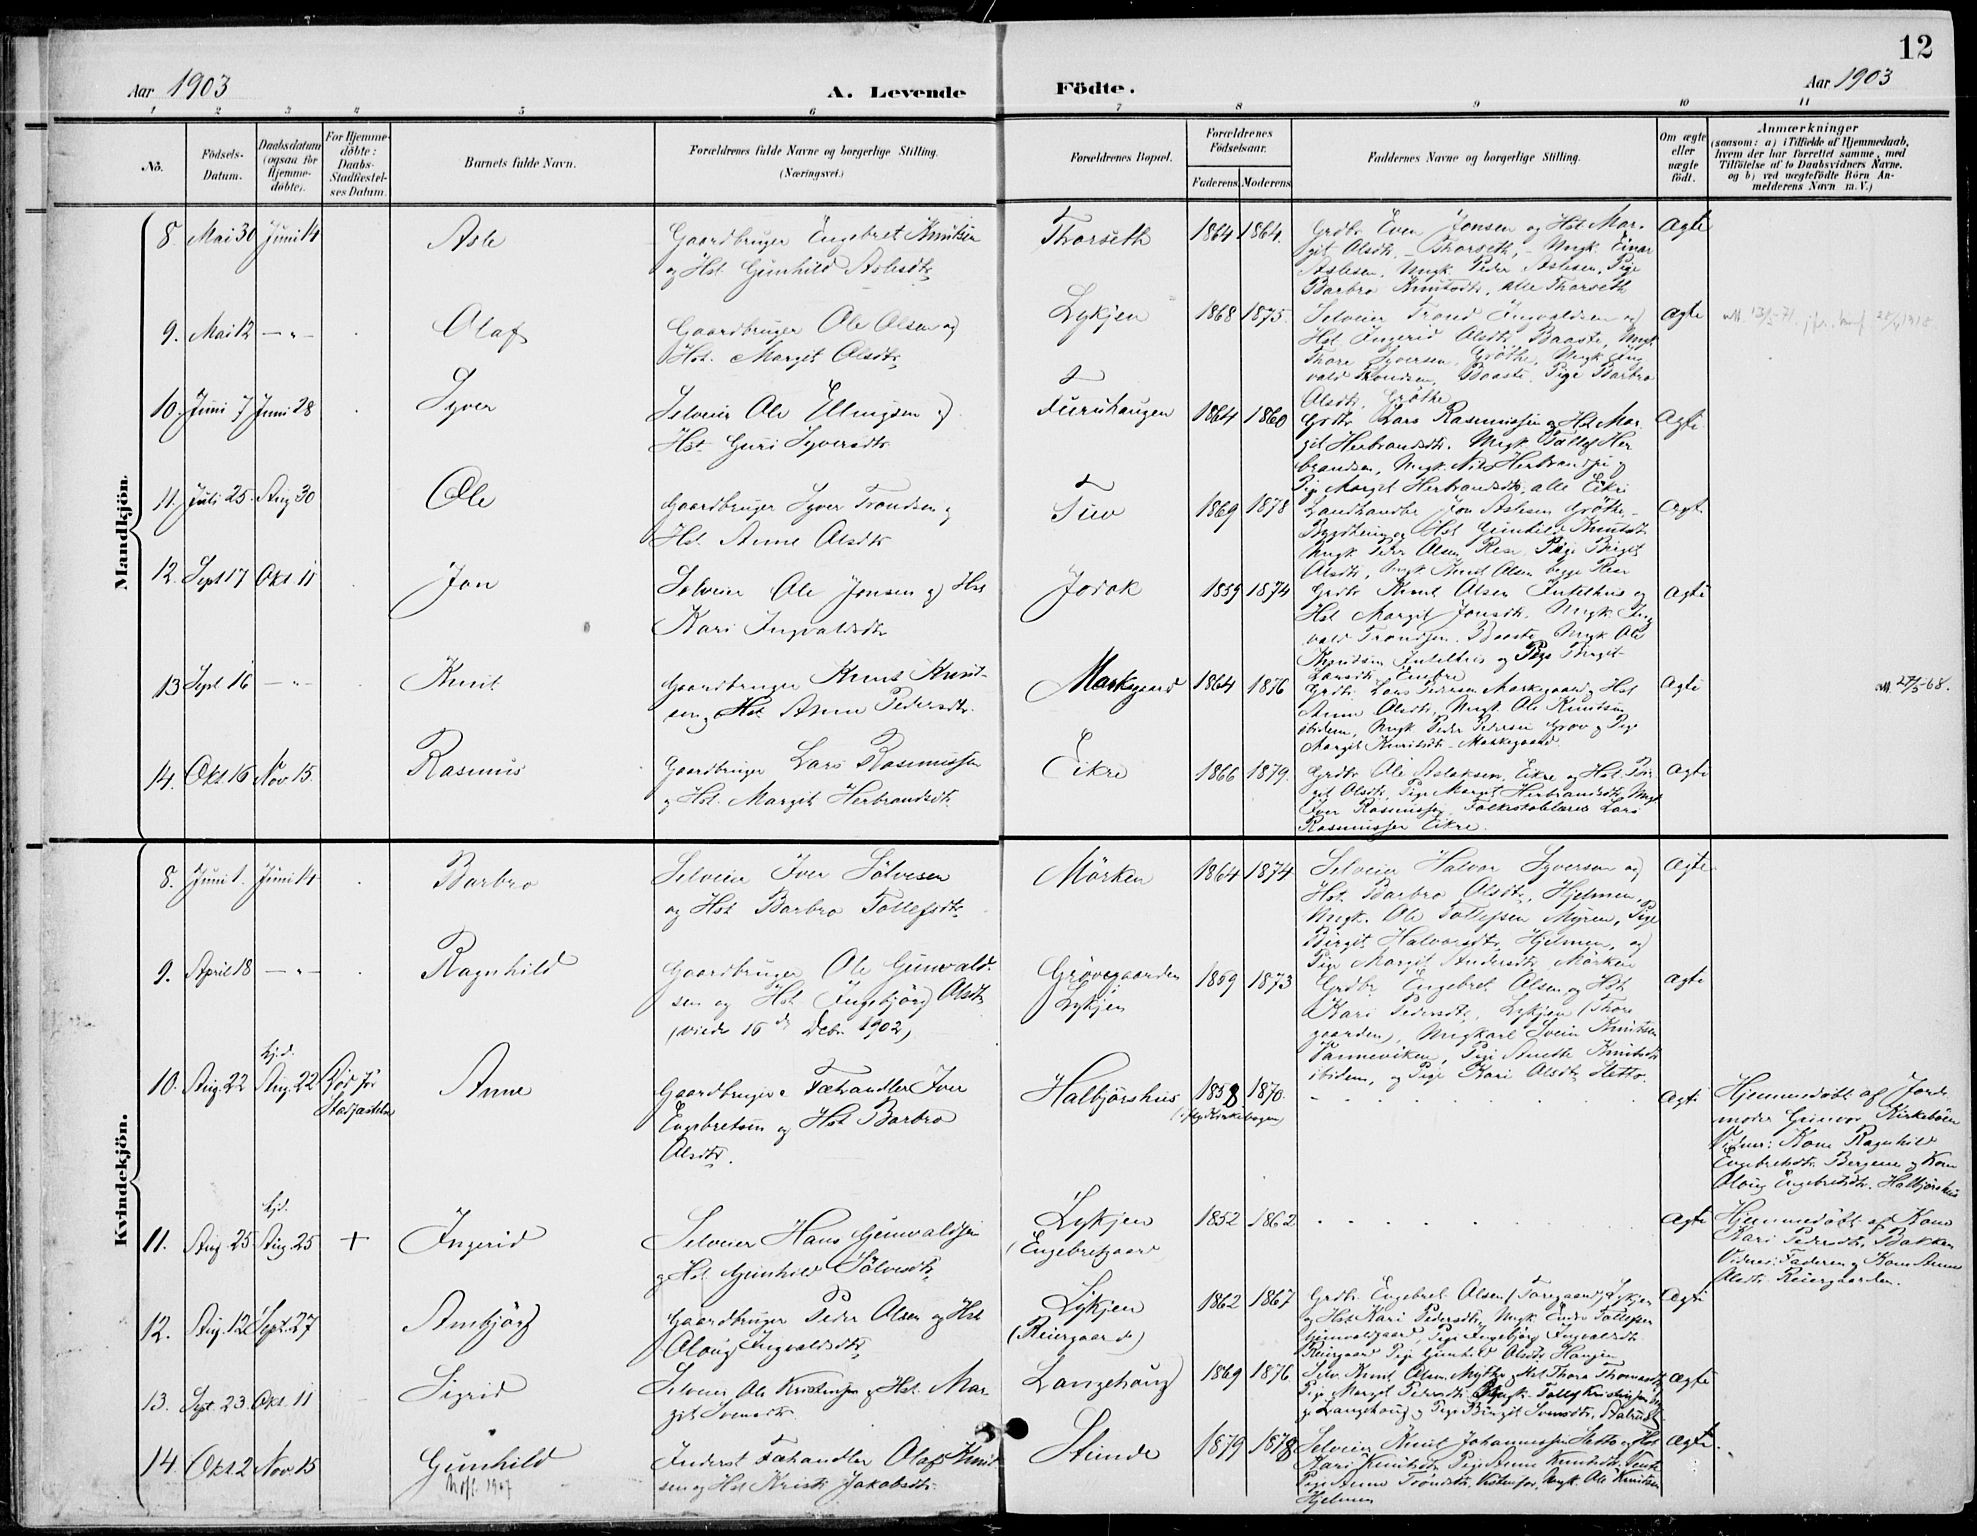 12
Aar 1903
A. Levende Födte.
Aar 1903
1 2 3 4 5 6 7 8 9 10 11
No.
Födsels-Datum.
Daabsdatum (ogsaa for Hjemme-döbte).
For Hjemme-döbte: Daabs-Stadfæstel-ses Datum.
Barnets fulde Navn.
Forældrenes fulde Navne og borgerlige Stilling. (Næringsvei.)
Forældrenes Bopæl.
Forældrenes Födselsaar.
Faderens Moderens
Faddernes Navne og borgerlige Stilling.
Om ægte eller uægte födt.
Anmærkninger
(saasom: a) i Tilfælde af Hjemmedaab, hvem der har forrettet samme, med Tilföielse af to Daabsvidners Navne, og b) ved uægtefödte Börn An-melderens Navn m. V.)
Mandkjön.
8 Mai 30 Juni 14 Asle
Gaardbruger Engebret Knutsen
og Hst Gunhild Aslesdtr
Thorseth 1864 1864.
Grdbr Even Jonsen og Hst Mar-
git Olsdtr Thorseth, Ungk. Einar
Aslesen, Ungk. Peder Aslesen, Pige
Barbro Knutsdtr, alle Thorseth
Ægte
9. Mai 12 — „ — Olaf
Gaardbruger Ole Olsen og
Hst. Margit Olsdtr
Lykjen 1868 1875.
Selveier Trond Ingvaldsen og
Hst Ingerid Olsdtr Baaste, Ungk.
Thore Syversen Gröthe, Ungk. Ing
vald Trondsen, Baaste, Pige Barbro
Olsdtr, Gröthe
Ægte
10. Juni 7 Juni 28 Syver
Selveier Ole Ellingsen og
Hst. Guri Syversdtr
Furuhaugen 1864 1860
Grdbr Lars Rasmussen og Hst Mar
git Herbrandsdtr. Ungk Tollef Her
brandsen, Ungk. Nils Herbrandsen og
Pige Margit Herbrandsdtr, alle Eikre
Ægte
11. Juli 25. Aug 30 Ole
Gaardbruger Syver Trondsen og
Hst Anne Olsdtr
Tuv 1869 1878
Landhandler Jon Aslesen Gröthe
og Hst Gunhild Knutsdtr
Ungk Peder Olsen Rese, Pige Birget
Olsdtr, Ungk Knut Olsen begge Rese
Ægte
12. Sept 17 Okt. 11 Jon
Selveier Ole Jonsen og Hst
Kari Ingvaldsdtr
Jordk 1859 1874
Grdbr Knut Olsen Intelhus og
Hst Margit Jonsdtr, Ungk Ing
vald Trondsen Baaste, Ungk Ole
Knudsen Intelhus og Pige Birgit
Larsdtr
Ægte
13 Sept 16 — „ — Knut
Gaardbruger Knut Knud-
sen og Hst Anne Pedersdtr.
Markegaard 1864 1876
Grdbr Lars Pedersen Markegaard og Hst
Anne Olsdtr, Ungk. Ole Knutsen
ibidem, Ungk Peder Pedersen Grov og Pige
Margit Knutsdtr Markegaard
Ægte
14. Okt 16 Nov. 15 Rasmus
Gaardbruger Lars Rasmussen
og Hst. Margit Herbrandsdtr
Eikre 1866 1879.
Grdbr Ole Aslaksen, Eikre og Hst Bir
git Olsdtr, Pige Margit Herbrandsdtr, Ungk
Iver Rasmussen, Folkeskolelærer Lars
Rasmussen Eikre.
Ægte
Kvindekjön.
8. Juni 1. Juni 14 Barbro
Selveier Iver Sölvesen
og Hst Barbro Tollefsdtr
Mörken 1864 1874
Selveier Halvor Syversen og
Hst Barbro Olsdtr, Hjelmen,
Ungk. Ole Tollefsen Myren, Pige
Birgit Halvorsdtr, Hjelmen, og
Pige Margit Andersdtr Mörken
Ægte.
9. April 18 — „ — Ragnhild
Gaardbruger Ole Gunvald-
sen og Hst. Ingebjörg Olsdtr
(viede 16de Decbr 1902)
Grövegaarden
Lykjen 1859 1873
Grdbr. Engebret Olsen og Hst
Kari Pedersdtr, Lykjen (Thore
gaarden), Ungkarl Svein Knutsen
Vanneviken, Pige Anette Knutsdtr
ibidem, og Pige Kari Olsdtr Hetto
Ægte
10. Aug. 22 hjd. Aug. 22 Död för Stadfæstelsen Anne
Gaardbruger & Fæhandler Iver
Engebretsen og Hst Barbro
Olsdtr.
Halbjörshus 1858 1870
Ægte
Hjemmedöbt af Jorde
moder Gunvor Kirkeböen
Vidner: Kone Ragnhild
Engebretsdtr Bergene og Kone
Olaug Engebretsdtr. Halbjörshus
11. Aug 25 hjd. Aug. 25 + Ingerid
Selveier Hans Gunvaldsen
og Hst. Gunhild Sölvesdtr
Lykjen
(Engebretgaard 1852 1862
Ægte
Hjemmedöbt af Kone
Kari Pedersdtr Bakken
Vidner: Faderen og Kone Anne
Olsdtr Reiergaarden.
12. Aug. 12 Sept. 27 Ambjörg
Gaardbruger Peder Olsen og Hst
Olaug Ingvaldsdtr
Lykjen
(Reiergaarde) 1862 1867
Grdbr. Engebret Olsen (Toregaard) Lykjen
og Hst Kari Pedersdtr, Ungk Endre Tollefsen
Gunvaldgaard, Pige Ingebjörg Ingvaldsdtr
Reiergaard Pige Gunhild Olsdtr Haugen
Ægte
13. Sept. 23. Okt. 11 Sigrid
Selveier Ole Kristensen og Hst. Mar
git Svensdtr.
Langehaug 1869 1876
Selv. Knut Olsen Myhre og Hst Thora Thomasdtr
Pige Margit Pedersdtr Ungk. Tollef Kristensen
Langehaug og Pige Birgit Svensdtr,
Ægte
14. Okt. 2 Nov. 15 Gunhild
Inderst Fæhandler Olaf Knud
sen og Hst Kristi Jakobsdtr.
Stunde 1879 1878
Selveier Knut Johannessen Hetto og Hst
Kari Knutsdtr Pige Anne Knutsdtr
Pige Anne Trondsdtr, Ungk Ole Knutsen
Hjelmen
Ægte